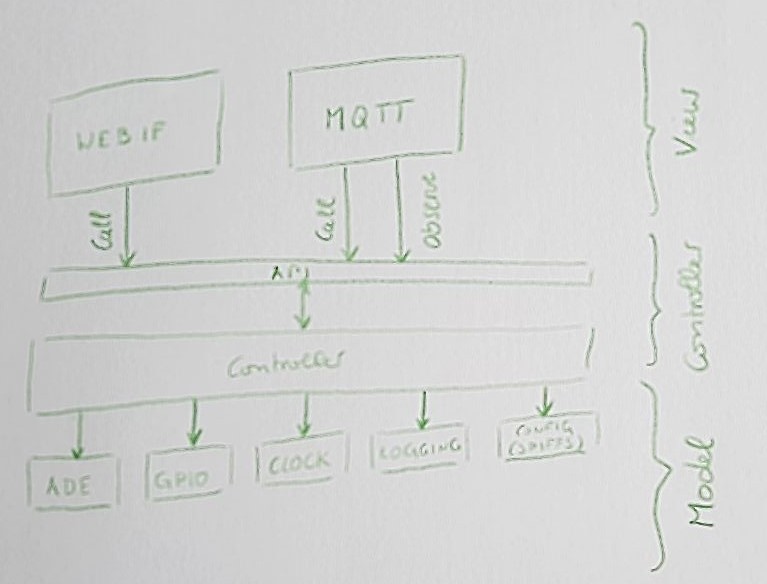 WEBIF
MQTT
View
Call
Call
observe
API
Controller
Controller
ADE
GPIO
CLOCK
LOGGING
CONFIG
(SPIFFS)
Model